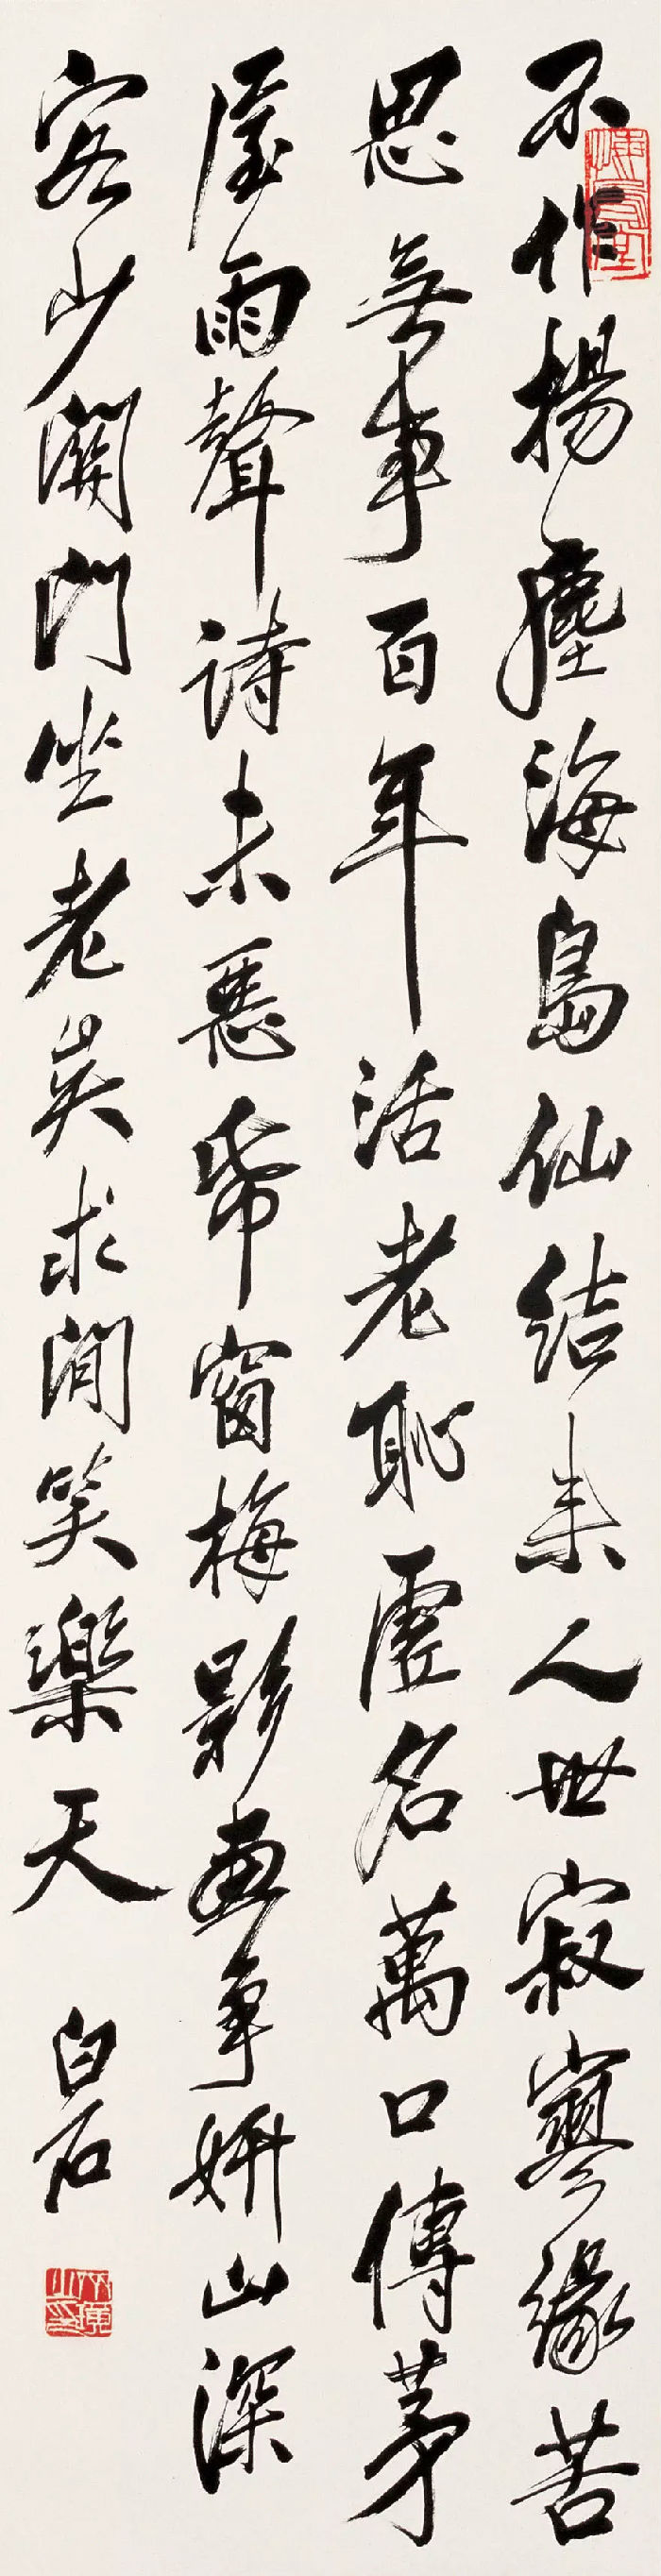 不作揚塵海島仙結来人世寂寥緣苦
思無事百年活老恥虛名萬口傳茅
屋雨聲詩未惡紙窗梅影畫爭妍山深
客少關門坐老矣求閒笑樂天
白石